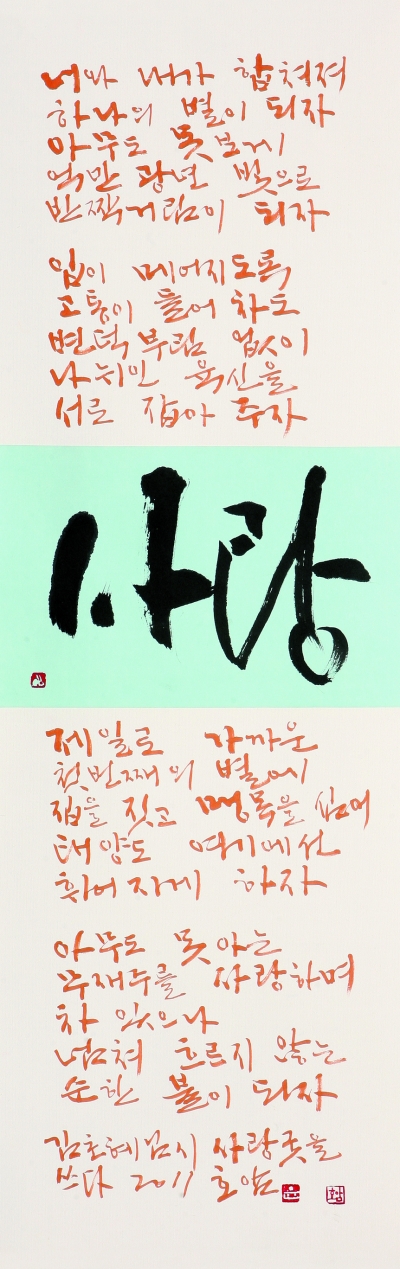 너와 내가 합쳐져
하나의 별이 되자
아무도 못보게
억만 광년 빛으로
반짝거림이 되자
입이 메어지도록
고통이 들어 차도
변덕 부림 없이
나뉘인 육신을
서로 잡아 주자
사랑
제일로 가까운
첫번째의 별에
집을 짓고 맹목을 심어
태양도 여기에선
휘어지게 하자
아무도 못 아는
무재주를 자랑하며
차 있으나
넘쳐 흐르지 않는
순한 물이 되자
김초혜님 시 사랑굿을
쓰다 2011 호암